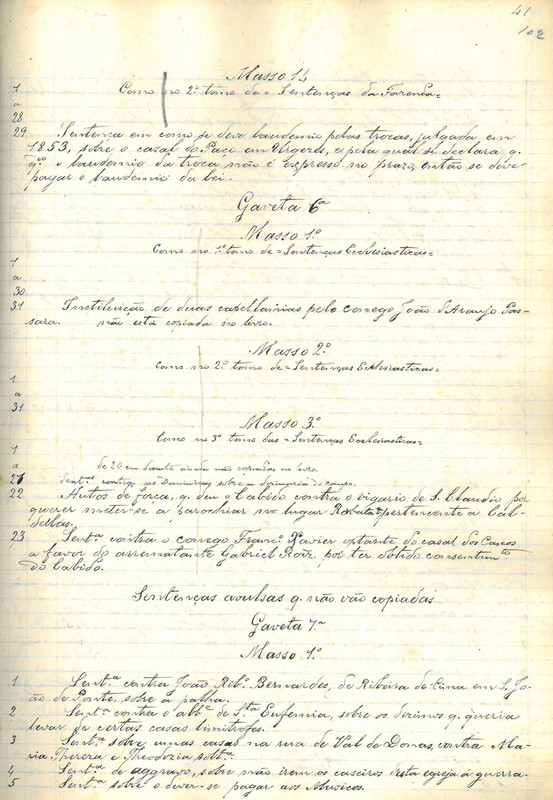 41
102
Masso 14
1 Como no 2º tomo de = Sentenças da Fazenda =
a
28
29 Sentença em como se deve laudemio pelas trocas, julgada em
1853, sobre o casal do Paço em Urgezes, e pela qual se declara q.
qdo o laudemio da troca não é expresso no prazo, então se deve
pagar o laudemio da lei.
Gaveta 6ª
Masso 1º
Como no 1º tomo de = Sentenças Ecclesiasticas =
1
a
30
31 Instituição de duas capellanias pelo conego João d'Araujo Pas-
sara. não está copiada no livro.
Masso 2º
Como no 2º tomo de = Sentenças Ecclesiasticas =
1
a
31
Masso 3º
Como no 3º tomo das = Sentenças Ecclesiasticas =
1
a de 20 em diante ainda não copiadas no livro.
21 Sentças contra os Dominicos sobre a do campo.
22 Autos de força, q. deu o Cabido contra o vigario de S. Claudio por
querer metter-se a parochiar no lugar pertencente a Cal-
dellas.
23 Sentª contra o conego Francº Xavier optante do casal dos Cascos
a favor do arrematante Gabriel Roiz, por ter obtido consentimto
do Cabido.
Sentenças avulsas q. não vão copiadas
Gaveta 7ª
Masso 1º
1 Sentª contra João Ribº Bernardes, de Ribeira de Cima em S. Jo-
ão de Ponte, sobre a palha.
2 Sentª contra o abbe de Sta Eufemia, sobre os dizimos q. queria
levar de certas casas limitrofes.
3 Sentª sobre umas casas na rua de Val de Donas, contra Ma-
ria Thereza e Theodozia soltª.
4 Sentª de aggravo, sobre não irem os caseiros desta egreja á guerra.
5 Sentª sobre o dever-se pagar aos Musicos.